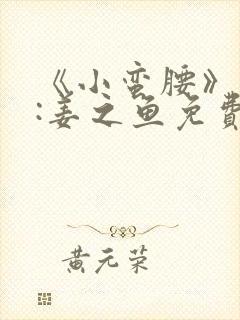 《小蛮腰》
:姜之鱼免費
黄元荣